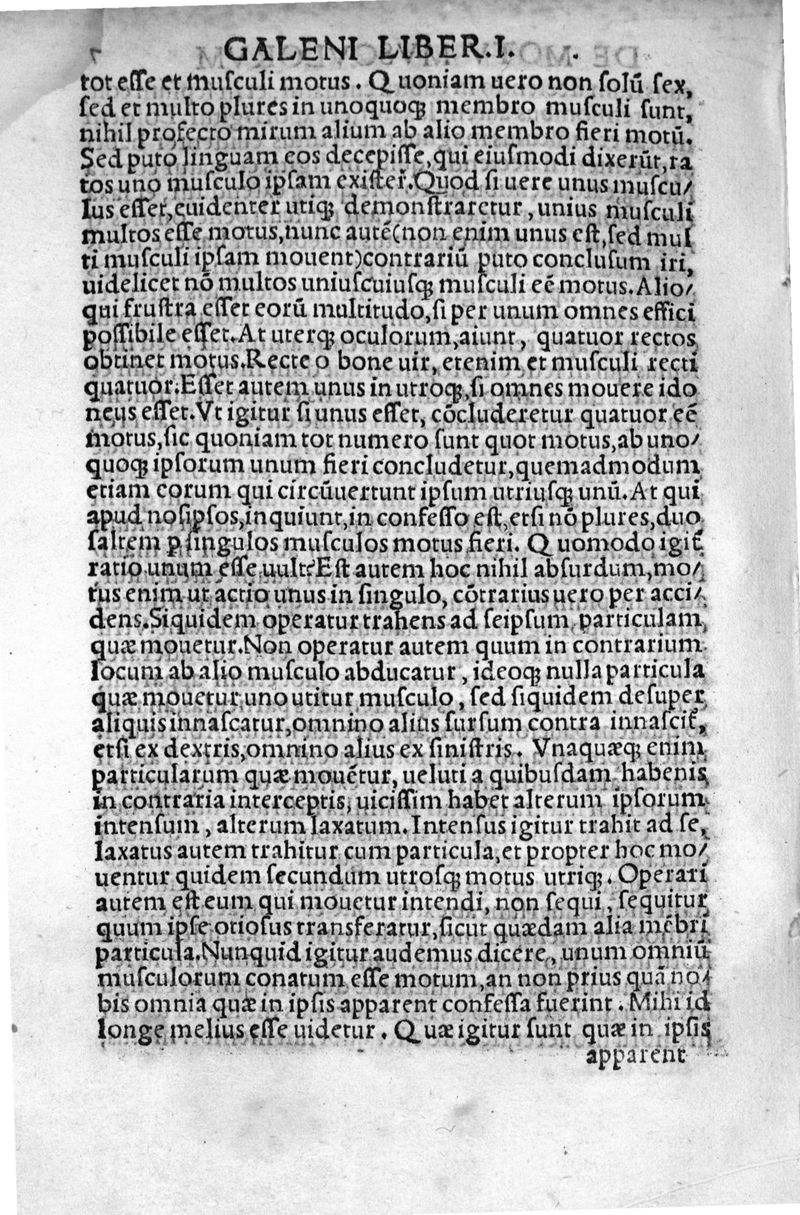 GALENI LIBER.I.
tot eſſe et muſculi motus. Quoniam uero non ſolũ ſex,
ſed et multo plures in unoquoq; membro muſculi ſunt,
nihil profecto mirum alium ab alio membro fieri motũ.
Sed puto linguam eos decepiſſe, qui eiuſmodi dixerũt, ra
tos uno muſculo ipſam exiſter̃. Quod ſi uere unus muſcu/
lus eſſet, euidenter utiq; demonſtraretur, unius muſculi
multos eſſe motus, nunc autẽ (non enim unus eſt, ſed mul
ti muſculi ipſam mouent) contrariũ puto concluſum iri,
uidelicet nõ multos uniuſcuiuſq; muſculi eẽ motus. Alio/
qui fruſtra eſſet eorũ multitudo, ſi per unum omnes effici
poſſibile eſſet. At uterq; oculorum, aiunt, quatuor rectos
obtinet motus. Recte o bone uir, etenim et muſculi recti
quatuor. Eſſet autem unus in utroq;, ſi omnes mouere ido
neus eſſet. Vt igitur ſi unus eſſet, cõcluderetur quatuor eẽ
motus, ſic quoniam tot numero ſunt quot motus, ab uno/
quoq; ipſorum unum fieri concludetur, quemadmodum
etiam eorum qui circũuertunt ipſum utriuſq; unũ. At qui
apud noſipſos, inquiunt, in confeſſo eſt, etſi nõ plures, duo
ſaltem p ſingulos muſculos motus fieri. Quomodo igit̃
ratio unum eſſe uult? Eſt autem hoc nihil abſurdum, mo/
tus enim ut actio unus in ſingulo, cõtrarius uero per acci/
dens. Siquidem operatur trahens ad ſeipſum particulam,
quæ mouetur. Non operatur autem quum in contrarium
locum ab alio muſculo abducatur, ideoq; nulla particula
quæ mouetur uno utitur muſculo, ſed ſiquidem deſuper
aliquis innaſcatur, omnino alius ſurſum contra innaſcit̃,
etſi ex dextris, omnino alius ex ſiniſtris. Vnaquæq; enim
particularum quæ mouẽtur, ueluti a quibuſdam habenis
in contraria interceptis, uiciſſim habet alterum ipſorum
intenſum, alterum laxatum. Intenſus igitur trahit ad ſe,
laxatus autem trahitur cum particula, et propter hoc mo/
uentur quidem ſecundum utroſq; motus utriq;. Operari
autem eſt eum qui mouetur intendi, non ſequi, ſequitur
quum ipſe otioſus transferatur, ſicut quædam alia mẽbri
particula. Nunquid igitur audemus dicere, unum omniũ
muſculorum conatum eſſe motum, an non prius quã no/
bis omnia quæ in ipſis apparent confeſſa fuerint. Mihi id
longe melius eſſe uidetur. Quæ igitur ſunt quæ in ipſis
apparent